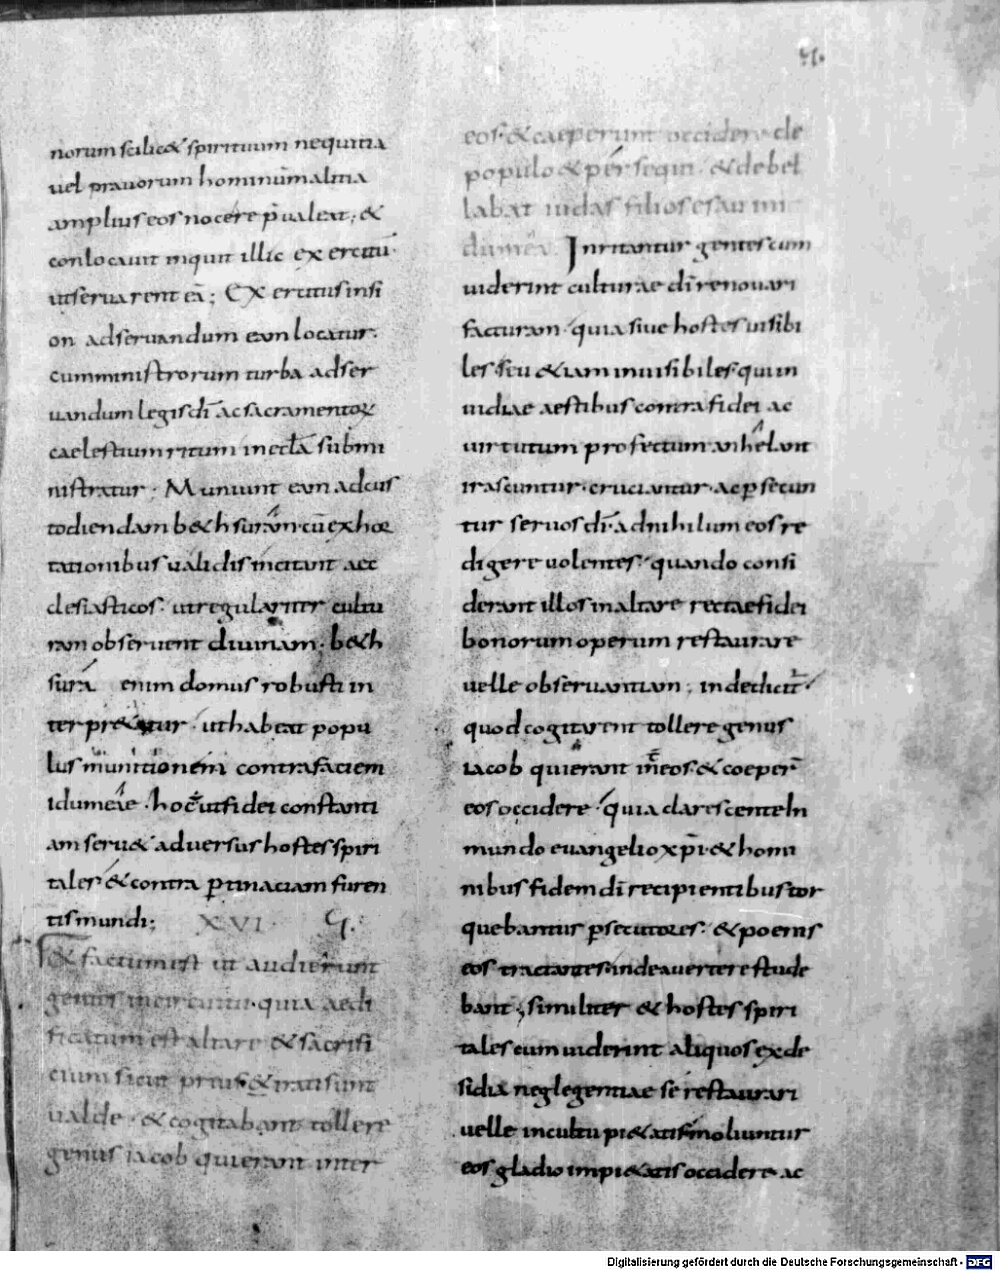 norum scilic& spirituum nequitia
uel prauorum hominum alma
amplius eos nocere p̄ualeat; &
conlocauit inquit illic exercitū
ut seruarent eā; Exercitus in si
on ad seruandum eam locatur.
cum ministrorum turba ad ser
uandum legis dī ac sacramentoꝝ
caelestium ritum in eccl̄a submi
nistratur. Muniunt eam ad cus
todiendam b&hsuram cū exhor
tationibus ualidis incitant aec
clesiasticos. ut regulariter cultu
ram obseruent diuinam. b&h
sura enim domus robusti in
terpr&atur. ut habeat popu
lus munitionem contra faciem
idumeae. hoc ē ut fidei constanti
am seru& aduersus hostes spiri
tales & contra ptinaciam furen
tis mundi; XVI
& factum est ut audierunt
gentes in circuitu. quia aedi
ficatum est altare & sacrifi
cium sicut prius & irati sunt
ualde. & cogitabant tollere
genus iacob qui erant inter
eos. & caeperunt occidere de
populo & persequi. & debel
labat iudas filios esau in i
dumea. Inritantur gentes cum
uiderint culturae dī renouari
facturam. quia siue hostes uisibi
les seu & iam inuisibiles. qui in
uidiae aestibus contra fidei ac
uirtutum profectum anhelant
irascuntur. cruciantur. ac psecun
tur seruos dī. ad nihilum eos re
digere uolentes. quando consi
derant illos in altare rectae fidei
bonorum operum restaurare
uelle obseruantiam; inde dicit̄
quod cogitarent tollere genus
iacob qui erant int̄ eos. & coeper̄
eos occidere. quia clarescente in
mundo euangelio xp̄i & homi
nibus fidem dī recipientibus tor
quebantur psecutores. & poenis
eos tractantes inde auertere stude
bant; similiter & hostes spiri
tales cum uiderint aliquos ex de
sidia neglegentiae se restaurari
uelle in cultu pi&atis moliuntur
eos gladio impi&atis occidere ac
Digitalisierung gefördert durch die Deutsche Forschungsgemeinschaft - DFG